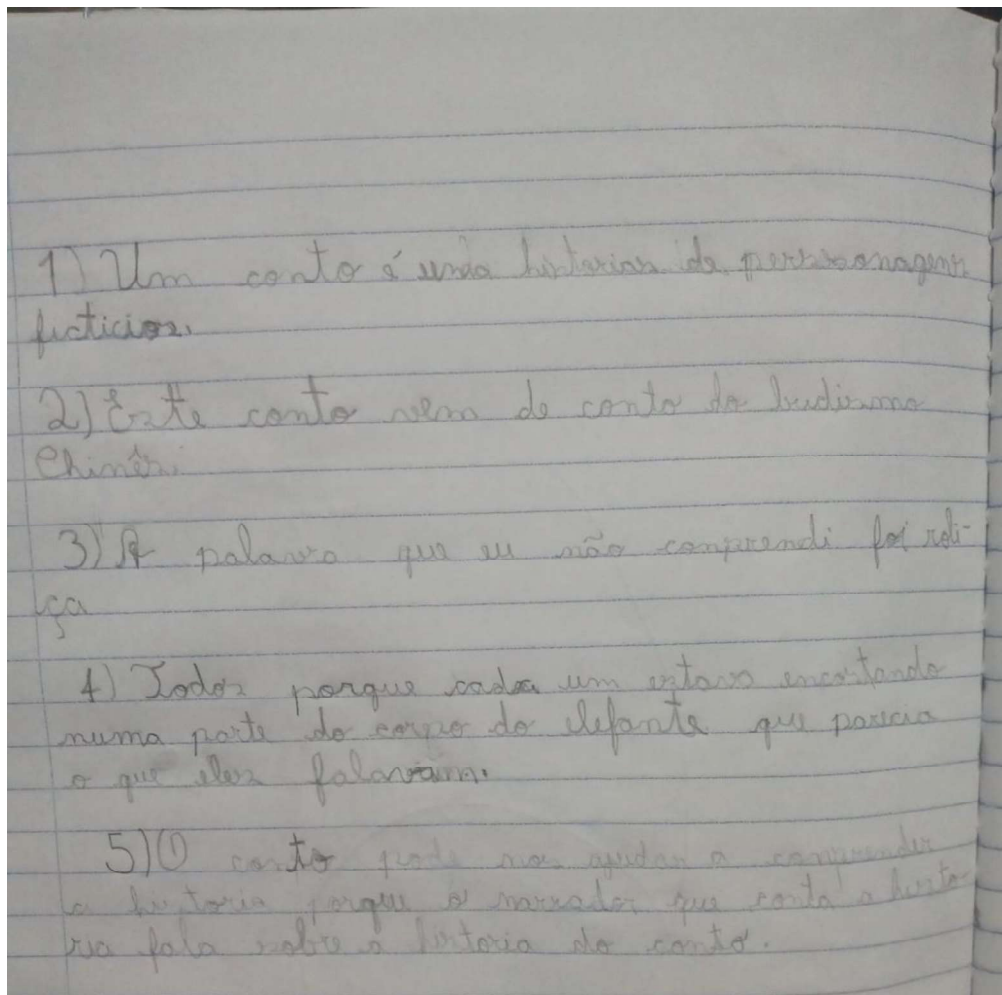 1) Um conto é uma historias de perssonagens
ficticios.
2) Este conto vem do conto do budismo
Chinês.
3) A palavra que eu não comprendi foi roli-
ça
4) Todos porque cada um estava encostando
numa parte do corpo do elefante que parecia
o que eles falavam.
5) O conto pode nos ajudar a comprender
a historia porque o narrador que conta a histo-
ria fala sobre a historia do conto.